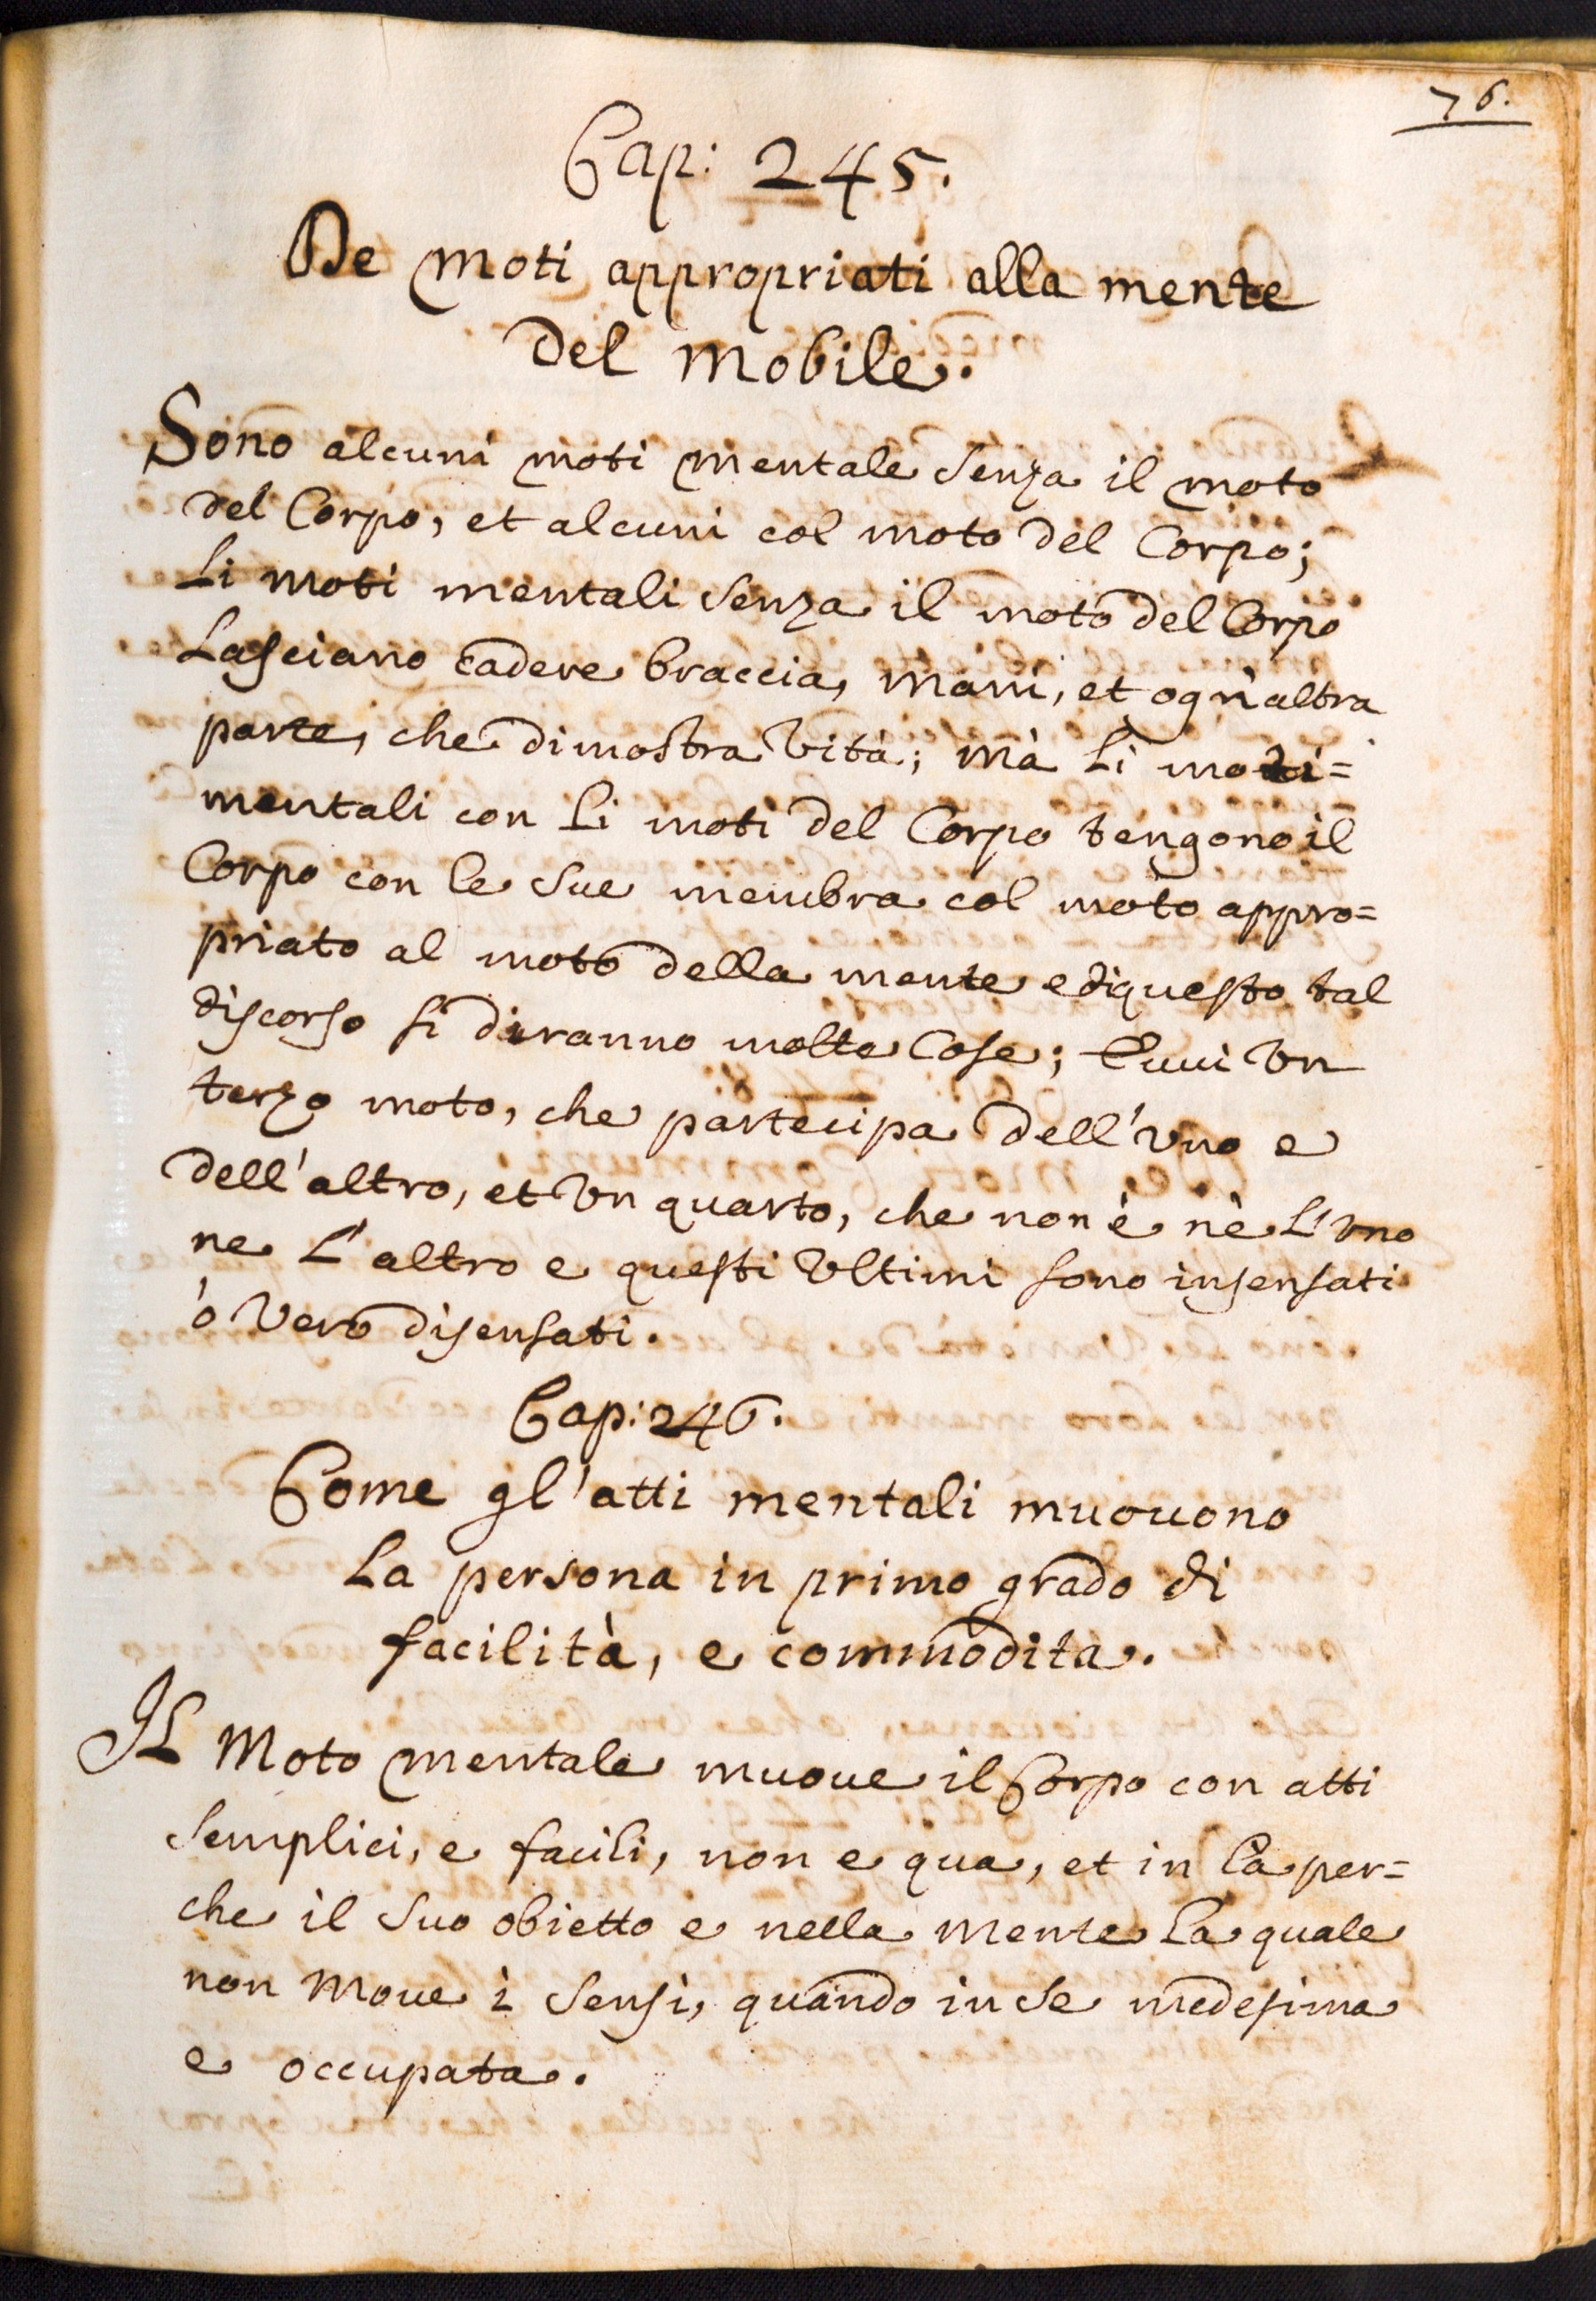 76.
Cap: 245.
De moti appropriati alla mente
del mobile.
Sono alcuni moti mentale senza il moto
del Corpo, et alcuni col moto del Corpo;
Li moti mentali senza il moto del Corpo
Lasciano cadere braccia, mani, et ogn'altra
parte, che dimostra vità; mà Li moti=
mentali con Li moti del Corpo tengono il
Corpo con le sue membra col moto appro=
priato al moto della mente ediquesto tal
discorso si diranno molte Cose; Euui Vn
terzo moto, che partecipa dell'vno e
dell'altro, et Vn quarto, che non è nè L'vno
ne L'altro e questi Vltimi sono insensati
ò Vero disensati.
Cap: 246.
Come gl'atti mentali muouono
La persona in primo grado di
facilità, e commodita.
IL Moto mentale muoue il Corpo con atti
semplici, e facili, non e qua, et in là per=
che il suo obietto e nella mente La quale
non Moue i sensi, quando in se medesima
e occupata.